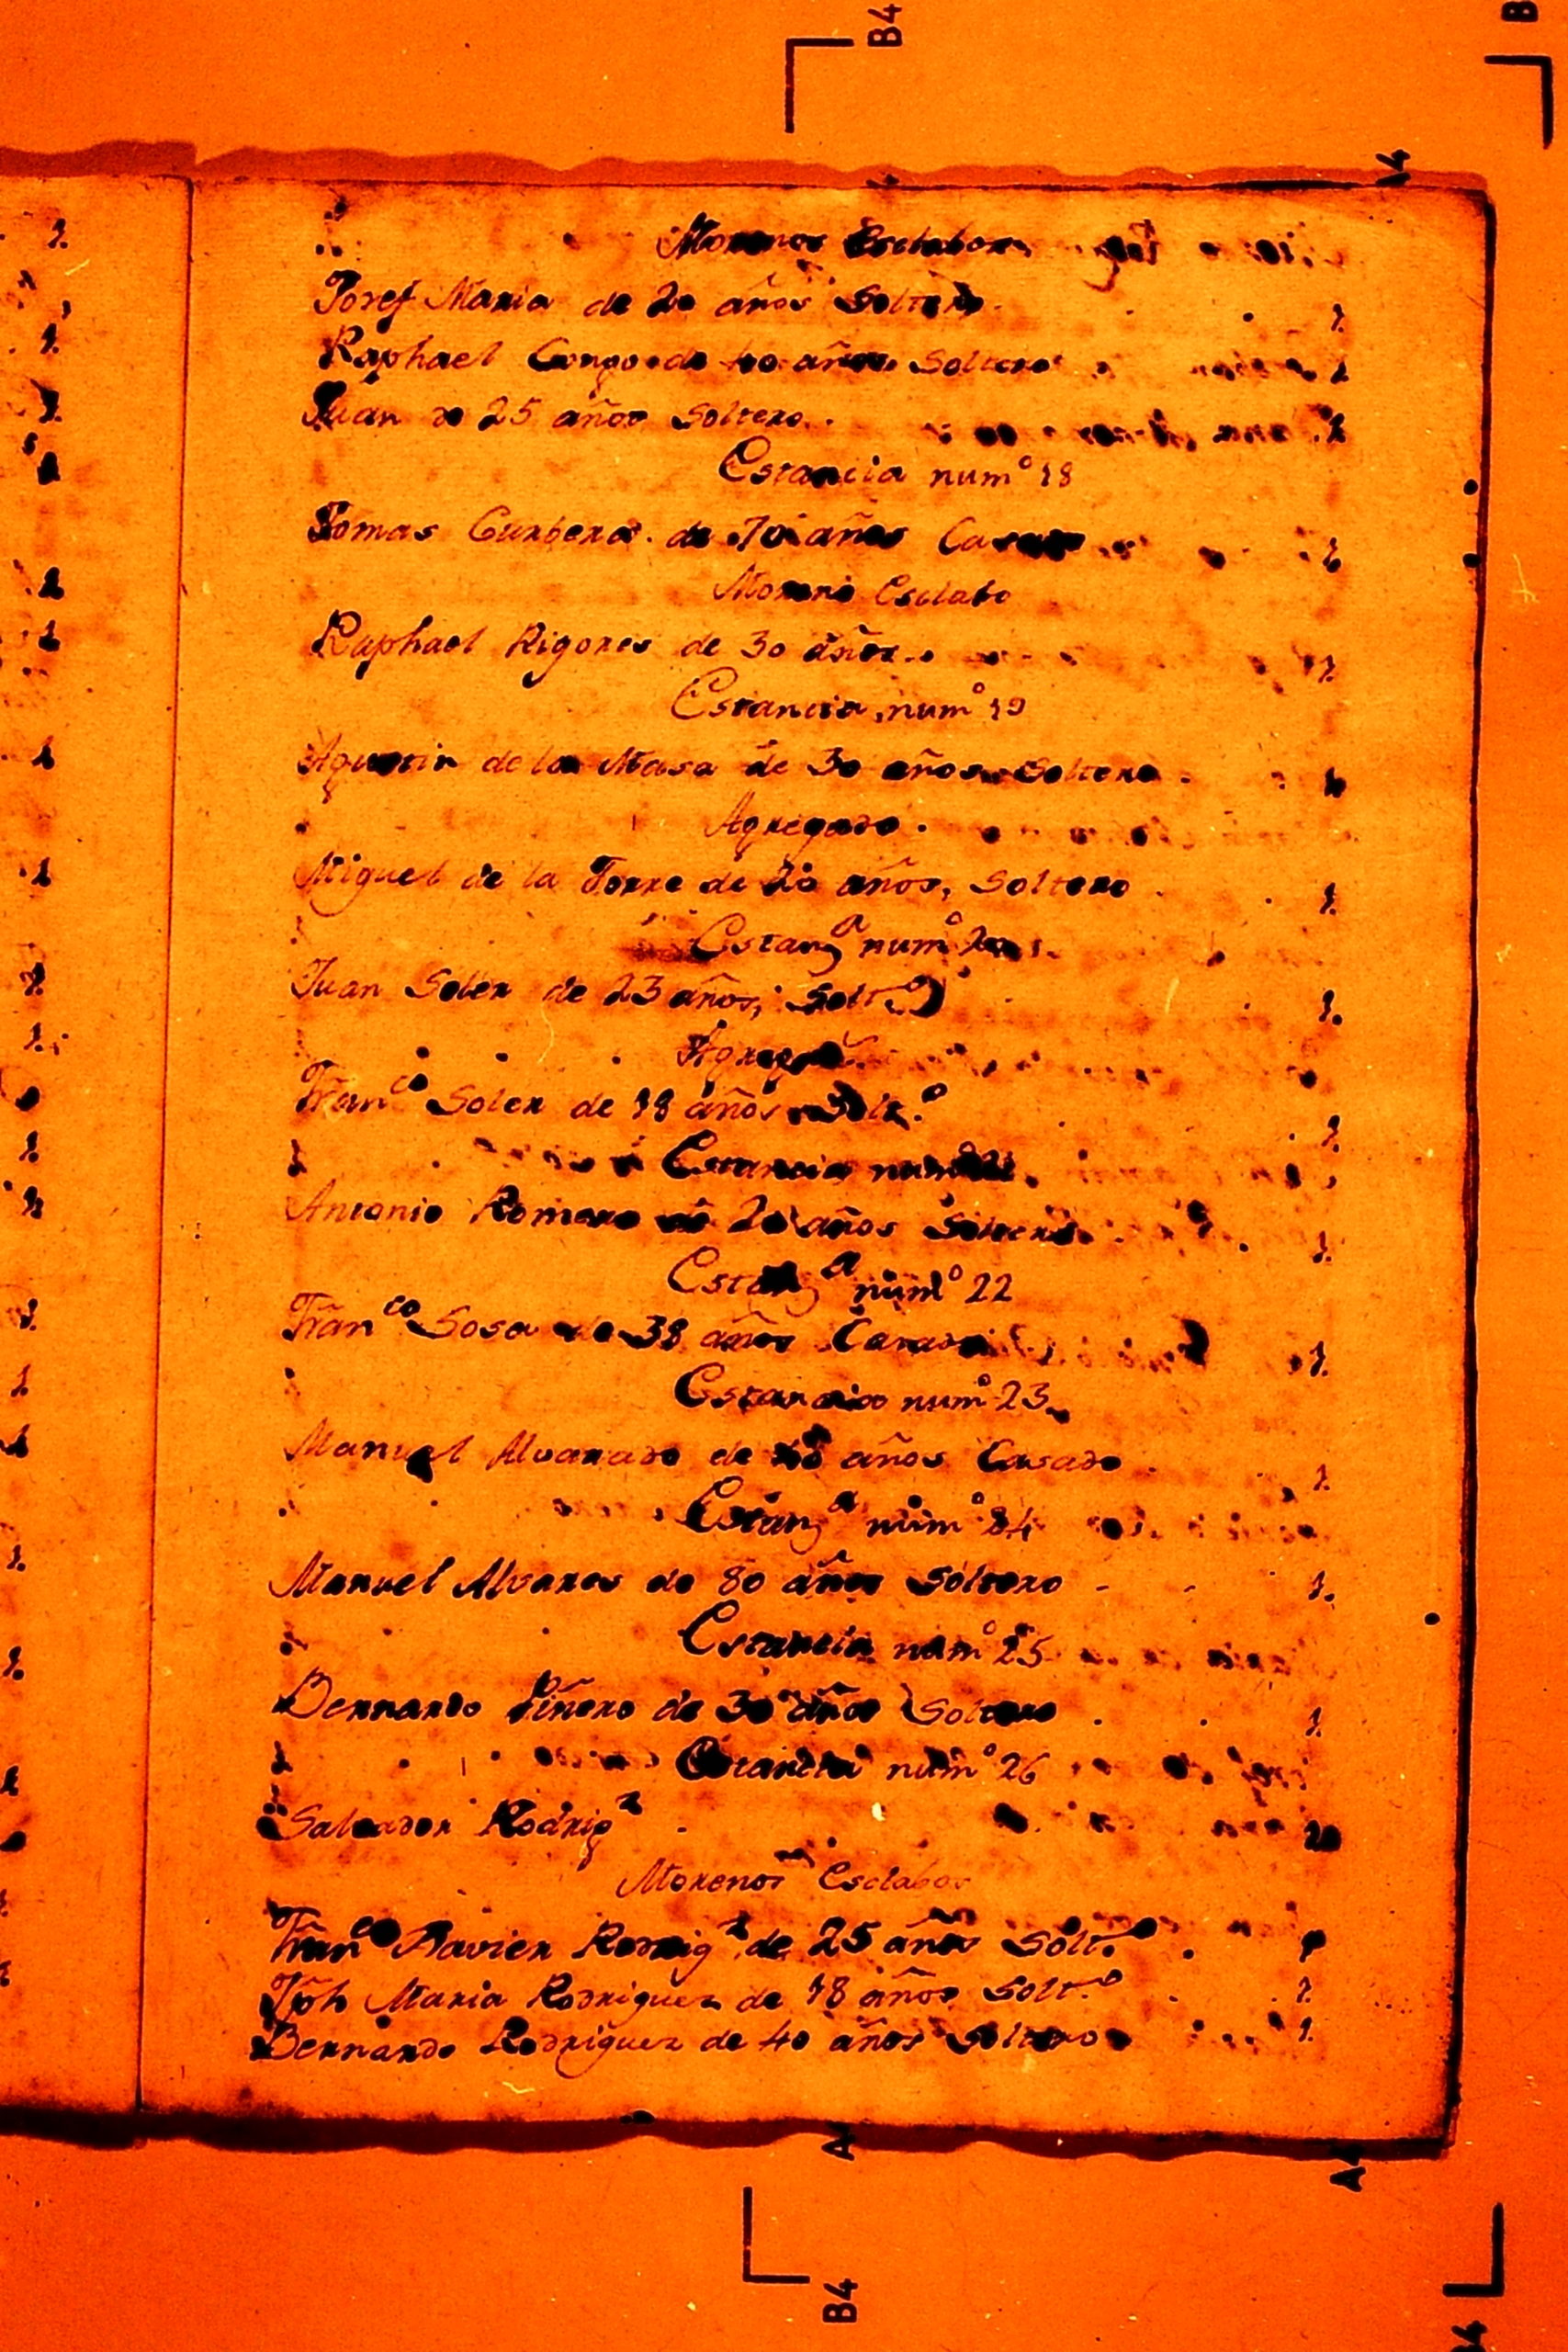 B4
B
A4
Morenos Esclabos
Josef Maria de 20 años Soltero
Raphael Congo de 40 años Soltero
Juan de 25 años Soltero
Estancia num.º 18
Tomas Curbera de 70 años Casado
Moreno Esclabo
Raphael Rigores de 30 años
Estancia num.º 19
Agustin de la Masa de 30 años Soltero
Agregado
Miguel de la Torre de 20 años, Soltero
Estanꝫª num.º
Juan Soler de 23 años, Solt.º
Agreg.º
Franco Soler de 18 años Solt.º
Estancia num.º 21
Antonio Romero de 20 años Soltero
Estanꝫª num.º 22
Franco Sosa de 38 años Casado
Estancia num.º 23
Manuel Alvarado de años Casado
Estanꝫª num.º 24
Manuel Alvares de 80 años Soltero
Estancia num.º 25
Bernardo Piñero de 30 años Soltero
Estancia num.º 26
Salvador Rodrigz
Morenos Esclabos
Franco Xavier Rodrigz de 25 años Solt.º
Jph Maria Rodriguez de 18 años Solt.º
Bernardo Rodriguez de 40 años Soltero
B4